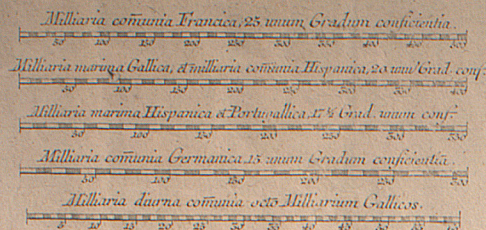 Milliaria com̄unia Francica, 25 unum Gradum conficientia.
50 100 150 200 250 300 350 400 450 500
Milliaria marina Gallica, et milliaria com̄unia Hispanica, 20 unu' Grad. conf.
50 100 150 200 250 300 400
Milliaria marima Hispanica et Portugallica, 17½ Grad. unum conf.
50 100 150 200 250 300
Milliaria com̄unia Germanica, 15 unum Gradum conficientia.
50 100 150 200 250 300
Milliaria diurna com̄unia octo Milliarium Gallicos.
5 10 15 20 25 30 35 40 45 50 60